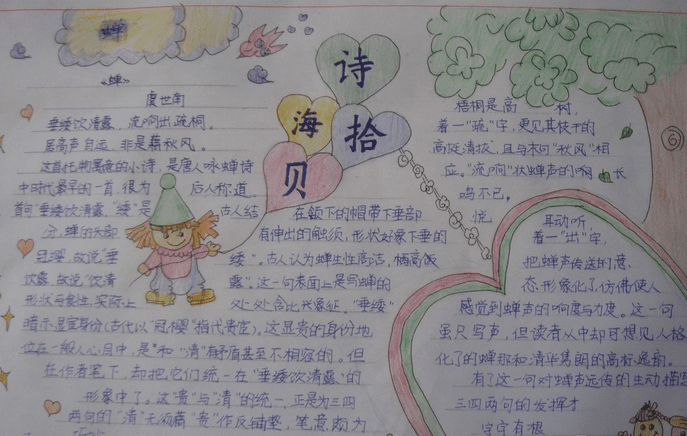 蝉
诗
海
拾
贝
《蝉》
虞世南
垂緌饮清露，流响出疏桐。
居高声自远，非是藉秋风。
这首托物寓意的小诗，是唐人咏蝉诗
中时代最早的一首，很为 后人称道
首句"垂緌饮清露，"緌"是 古人结
在颔下的帽带下垂部
分，蝉的头部 有伸出的触须，形状好象下垂的
故说"垂 緌"。古人认为蝉生性高洁，栖高饮
饮露，故说"饮清 露"。这一句表面上是写蝉的
形状与食性，实际上 处处含比兴象征。"垂緌"
暗示显宦身份(古代以"冠缨"指代贵宦)。这显贵的身份地
位在一般人心目中，是和"清"有矛盾甚至不相容的。但
在作者笔下，却把它们统一在"垂緌饮清露"的
形象中了。这"贵"与"清"的统一，正是为三四
两句的"清"无须藉"贵"作反铺垫，笔意颇为
梧桐是高 树，
着一"疏"字，更见其枝干的
高挺清拔，且与末句"秋风"相
应。"流响"状蝉声的 长
鸣不已，
悦 耳动听，
着一"出"字，
把蝉声传送的意
态形象化了，仿佛使人
感觉到蝉声的响度与力度。这一句
虽只写声，但读者从中却可想见人格
化了的蝉那和清华隽朗的高标逸韵。
有了这一句对蝉声远传的生动描
三四两句的发挥才
字字有根